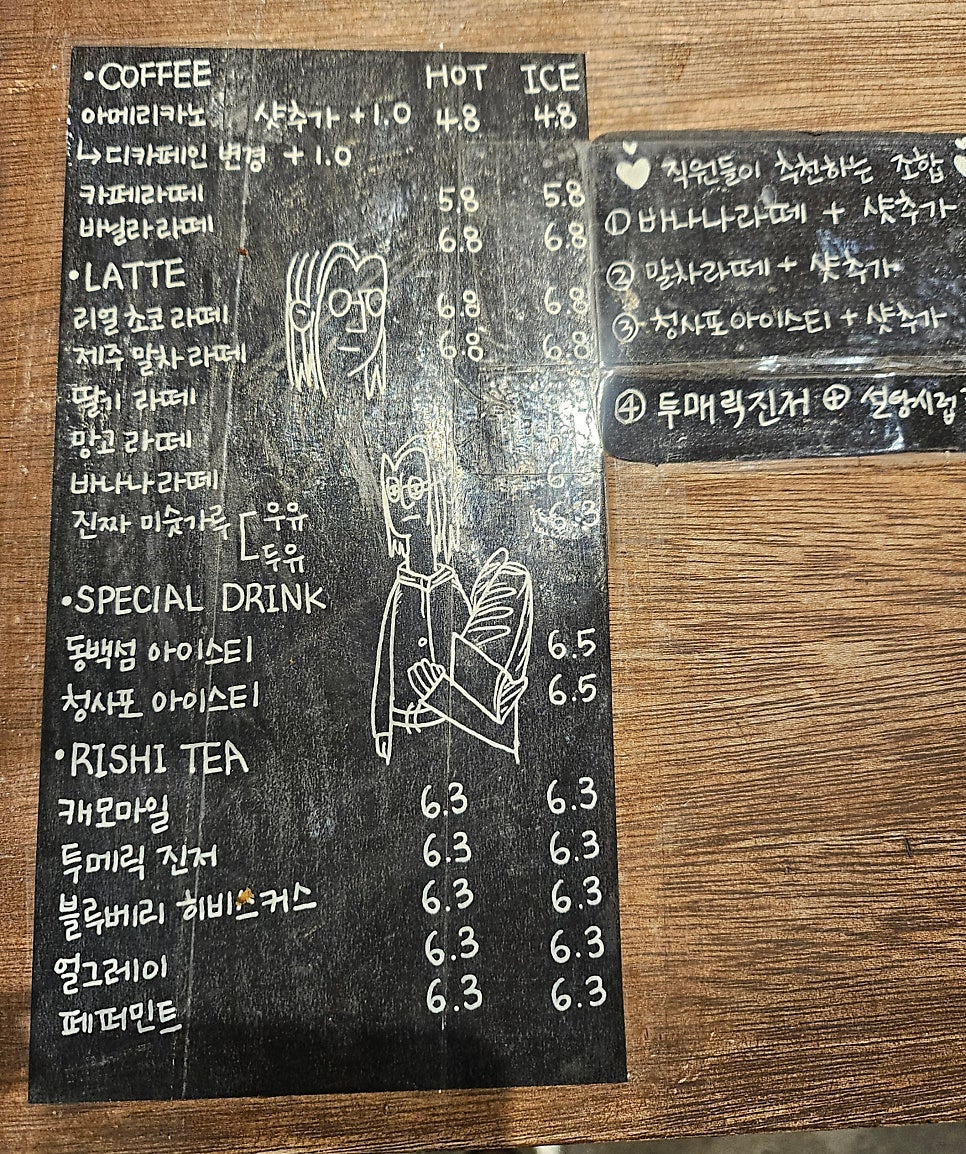 •COFFEE HOT ICE
아메리카노 샷추가 +1.0 4.8 4.8
↳디카페인 변경 +1.0
카페라떼 5.8 5.8
바닐라라떼 6.8 6.8
•LATTE
리얼초코라떼 6.8 6.8
제주 말차라떼 6.8 6.8
딸기 라떼
망고라떼
바나나라떼
진짜 미숫가루 우유 6.3
두유
•SPECIAL DRINK
동백섬 아이스티 6.5
청사포 아이스티 6.5
•RISHI TEA
캐모마일 6.3 6.3
투메릭 진저 6.3 6.3
블루베리 히비스커스 6.3 6.3
얼그레이 6.3 6.3
페퍼민트 6.3 6.3
직원들이 추천하는 조합
① 바나나라떼 + 샷추가
② 말차라떼 + 샷추가
③ 청사포아이스티 + 샷추가
④ 투매릭진저 ⊕ 설탕시럽